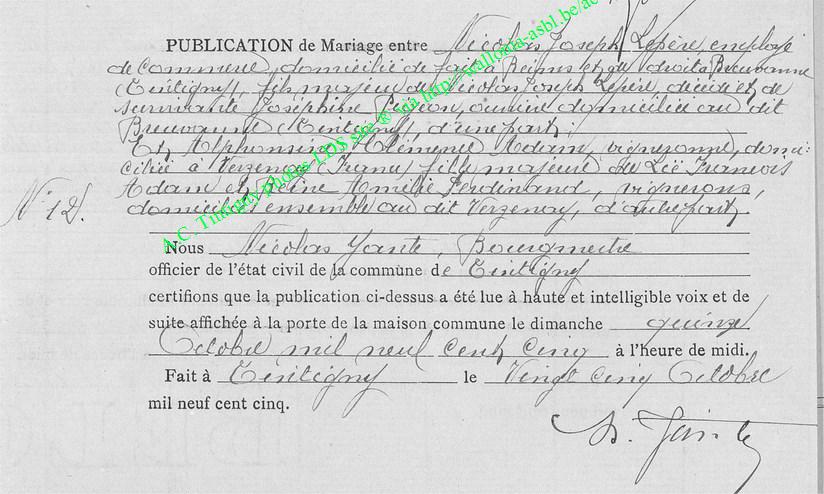 PUBLICATION de Mariage entre Nicolas Joseph Lepère, employé
de Commerce, domicilié de fait à Reims et de droit à Breuvanne
(Tintigny), fils majeur de Nicolas Joseph Lepère, décédé et de
survivante Joséphine ouvrière domiciliée au dit
Breuvanne (Tintigny), d'une part;
Et Alphonsine Clémence Adam, vigneronne, domi-
ciliée à Verzenay fille majeure de François
Adam et Amélie Ferdinand, vignerons,
domiciliés ensemble au dit Verzenay, d'autre part
N° 12.
Nous Nicolas Bourgmestre
officier de l'état civil de la commune de Tintigny
certifions que la publication ci-dessus a été lue à haute et intelligible voix et de
suite affichée à la porte de la maison commune le dimanche quinze
Octobre mil neuf cent cinq à l'heure de midi.
Fait à Tintigny le Vingt cinq Octobre
mil neuf cent cinq.
A.C. Tintigny photos LDS site ® via http://wallonia-asbl.be/ac